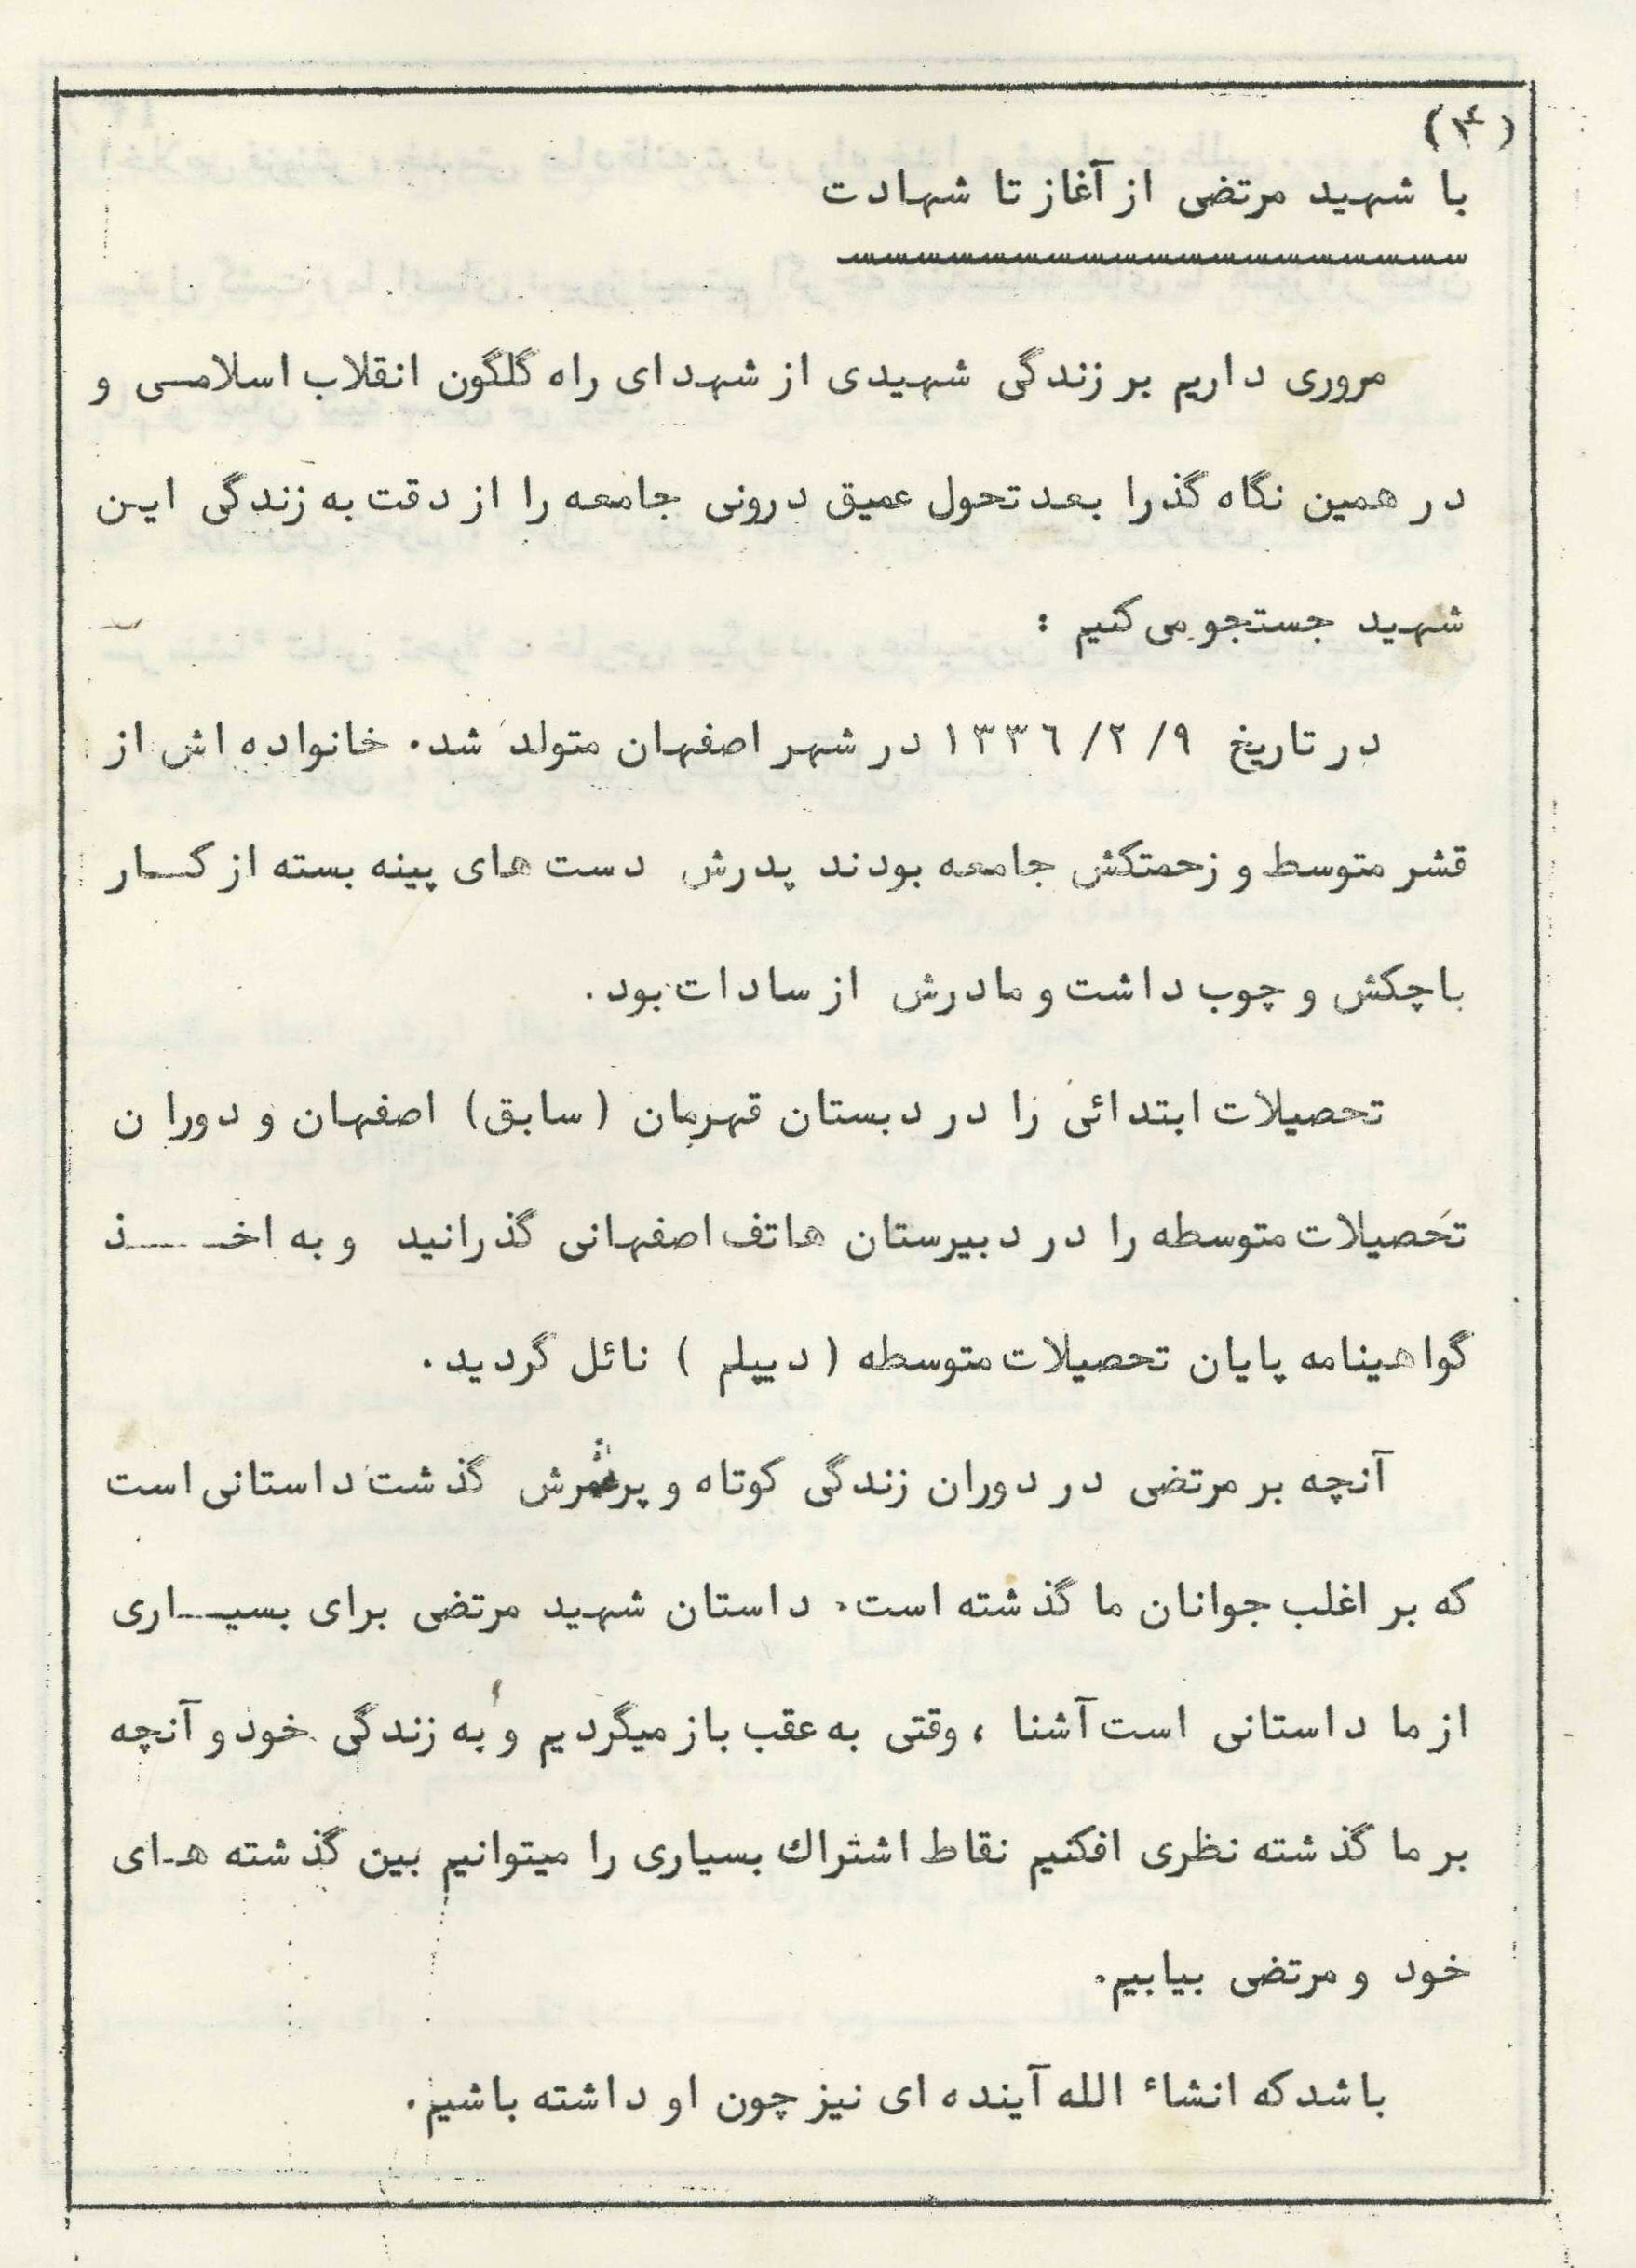 (۴)
با شهید مرتضی از آغاز تا شهادت
مروری داریم بر زندگی شهیدی از شهدای راه گلگون انقلاب اسلامی و
در همین نگاه گذرا بعد تحول عمیق درونی جامعه را از دقت به زندگی این
شهید جستجو می کنیم :
در تاریخ ۱۳۳۶/۲/۹ در شهر اصفهان متولد شد. خانواده اش از
قشر متوسط و زحمتکش جامعه بودند پدرش دست های پینه بسته از کار
با چکش و چوب داشت و مادرش از سادات بود.
تحصیلات ابتدائی را در دبستان قهرمان (سابق) اصفهان و دوران
تحصیلات متوسطه را در دبیرستان هاتف اصفهانی گذرانید و به اخذ
گواهینامه پایان تحصیلات متوسطه (دیپلم) نائل گردید.
آنچه بر مرتضی در دوران زندگی کوتاه و پرثمرش گذشت داستانی است
که بر اغلب جوانان ما گذشته است. داستان شهید مرتضی برای بسیاری
از ما داستانی است آشنا ، وقتی به عقب باز میگردیم و به زندگی خود و آنچه
بر ما گذشته نظری افکنیم نقاط اشتراك بسیاری را میتوانیم بین گذشته های
خود و مرتضی بیابیم.
باشد که انشاء الله آینده ای نیز چون او داشته باشیم.